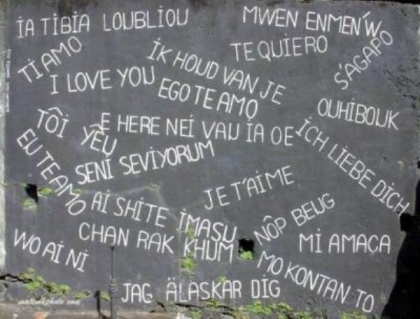 İA TİBİA LOUBLİOU
MWEN ENMEN'W
Tİ AMO
İK HOUD VAN JE
TE QUİERO
S'AGAPO
I LOVE YOU
EGO TE AMO
OUHİBOUK
TÔİ YÊU
E HERE NEI VAU İA OE
İCH LİEBE DİCH
EU TE AMO
SENİ SEVİYORUM
JE T'AİME
Aİ SHİTE İMASU
NÔP BEUG
CHAN RAK KHUM
Mİ AMACA
WO Aİ Nİ
MO KONTAN TO
JAG ÄLASKAR DİG